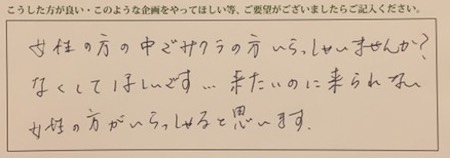 こうした方が良い・このような企画をやってほしい等、ご要望がございましたらご記入ください。
女性の方の中でサクラの方いらっしゃいませんか?
なくしてほしいです…来たいのに来られない
女性の方がいらっしゃると思います.